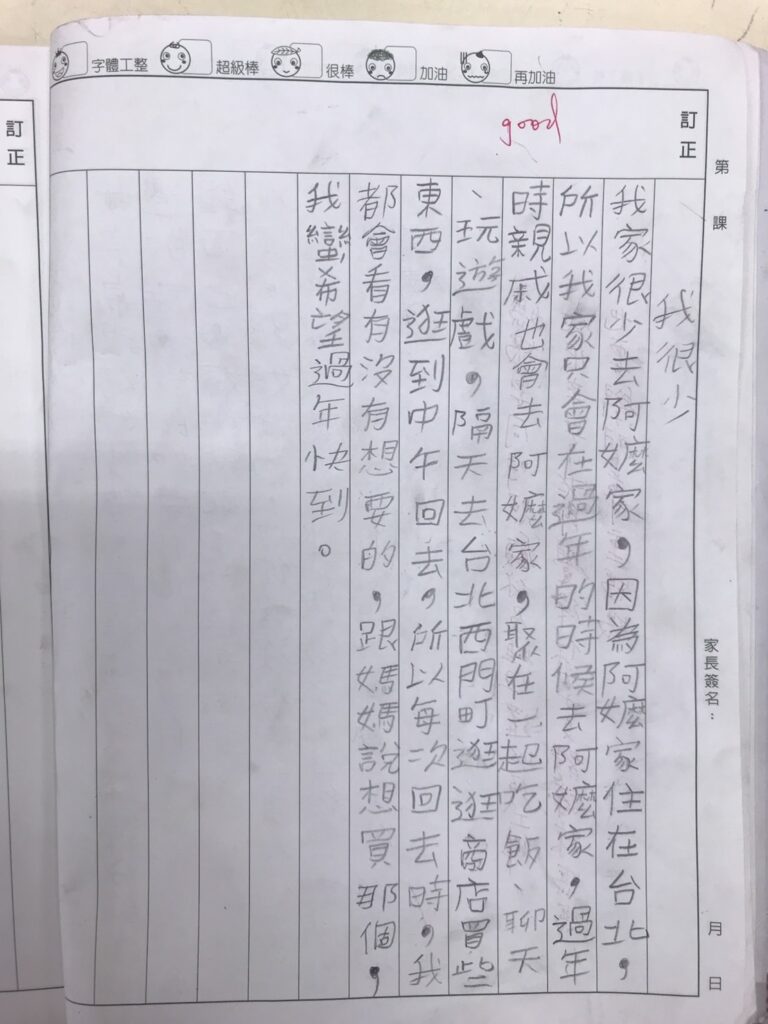 字體工整 超級棒 很棒 加油 再加油
訂正
good
訂正
第 課
家長簽名：
月 日
我很少
我家很少去阿嬤家，因為阿嬤家住在台北，
所以我家只會在過年的時候去阿嬤家，過年
時親戚也會去阿嬤家，聚在一起吃飯、聊天
、玩遊戲，隔天去台北西門町逛逛商店買些
東西，逛到中午回去，所以每次回去時，我
都會看有沒有想要的，跟媽媽說想買那個，
我蠻希望過年快到。